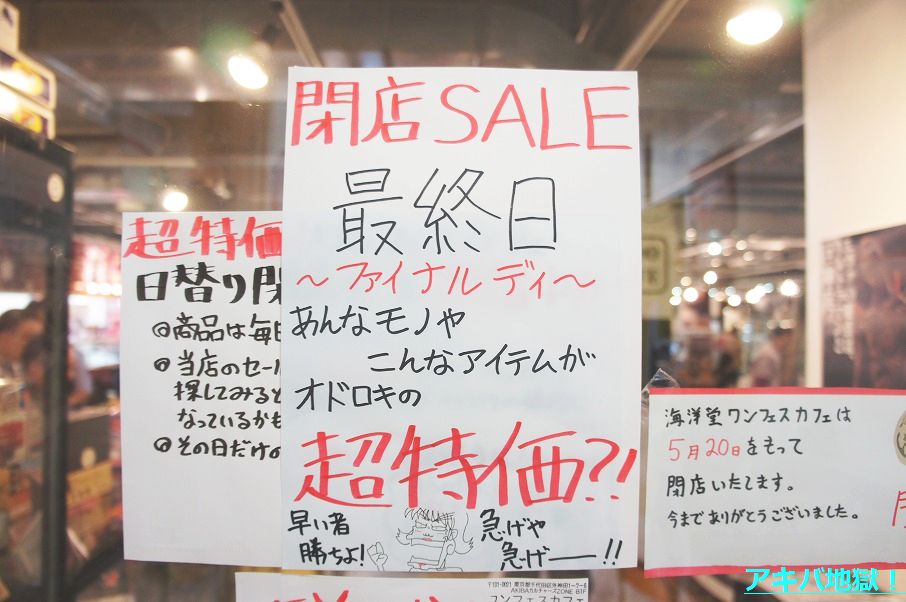 閉店SALE
最終日
～ファイナルディ～
あんなモノや
こんなアイテムが
オドロキの
超特価?!
早い者
勝ちよ!
急げや
急げー!!
超特価
日替り閉
◎商品は毎日
◎当店のセール
探してみると
なっているかも
◎その日だけの
海洋堂ワンフェスカフェは
5月20日をもって
閉店いたします。
今までありがとうございました。
〒101-0021 東京都千代田区外神田1-7-6
AKIBAカルチャーズZONE B1F
ワンフェスカフェ
アキバ地獄!